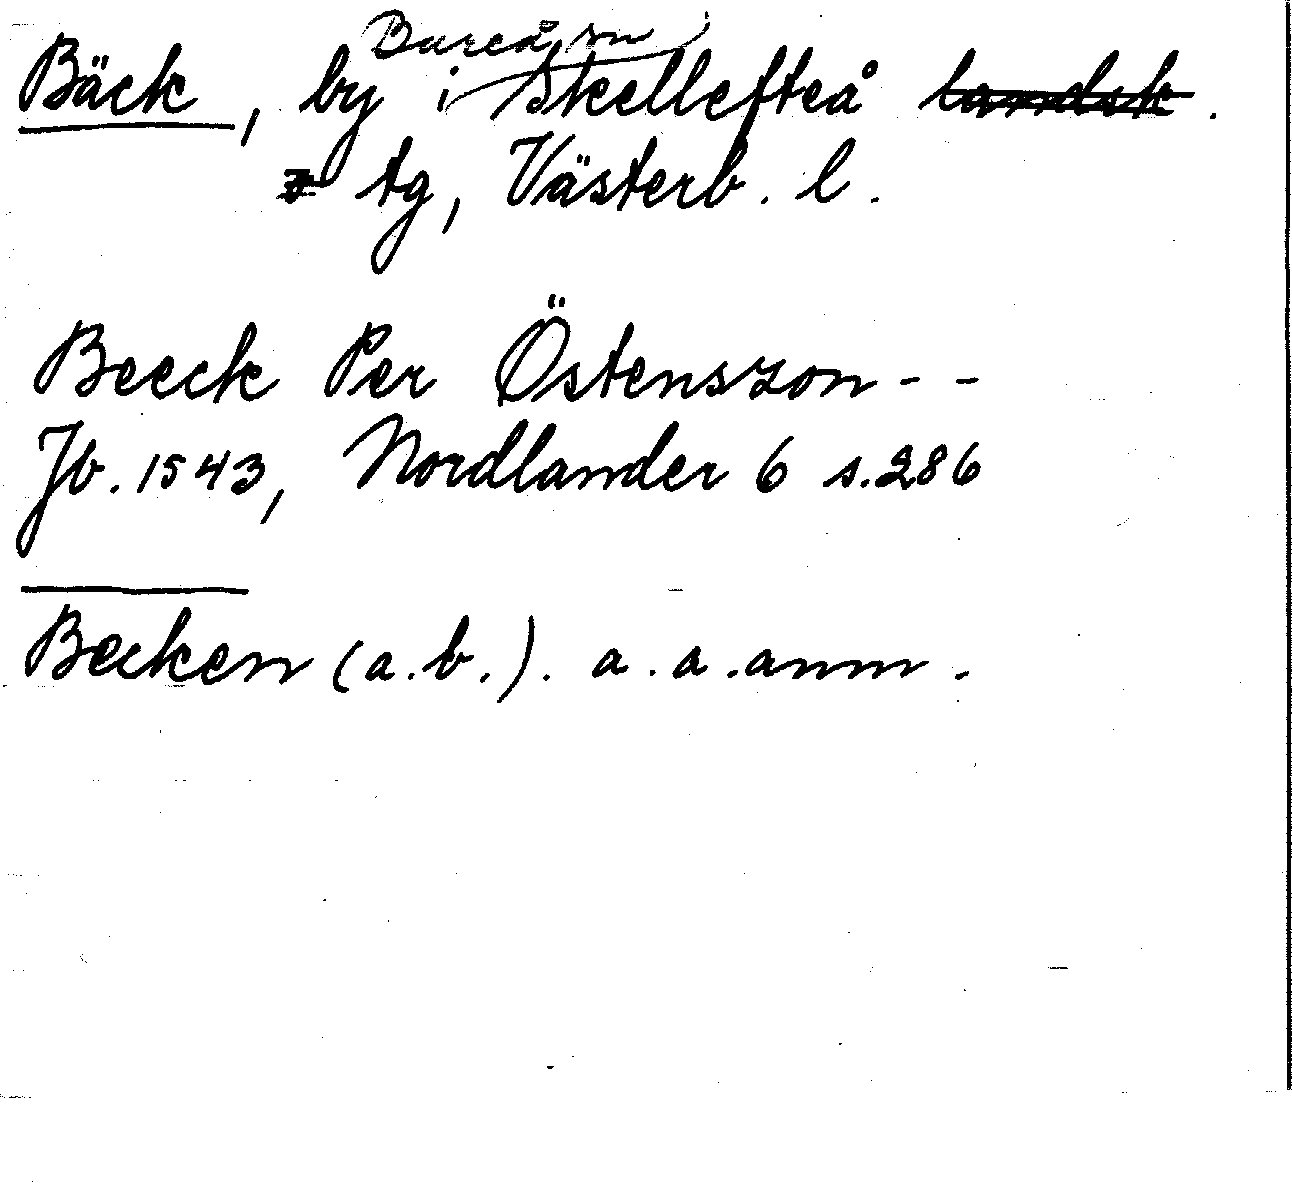 Bureå sn
Bäck, by i Skellefteå landsk.
tg, Västerb. l.
Beeck Per Östenszon - -
Jb. 1543, Nordlander 6 s. 286
Becken (a.b.). a.a. anm.